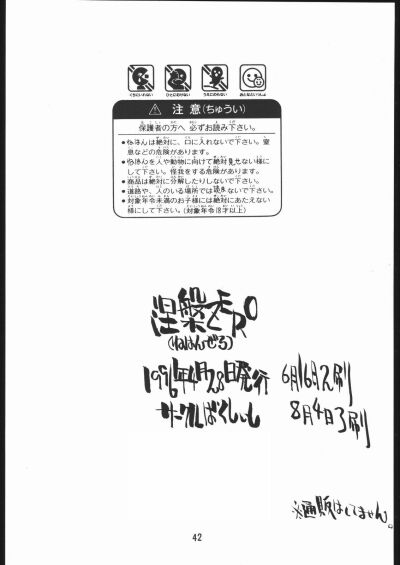 くちにいれない ひとにむけない うえにのらない おとなといっしょ
⚠ 注意(ちゅうい)
保護者の方へ 必ずお読み下さい。
●ねはんは絶対に、口に入れないで下さい。窒
息などの危険があります。
●ねはんを人や動物に向けて絶対見せない様に
して下さい。怪我をする危険があります。
●商品は絶対に分解したりしないで下さい。
●道路や、人のいる場所では覗きないで下さい。
●対象年令未満のお子様には絶対にあたえない
様にして下さい。(対象年令18才以上)
涅槃ZERO
(ねはんぜろ)
1996年4月28日発行
6月16日2刷
サークルばくしぃし
8月4日3刷
※通販はしてません。
42